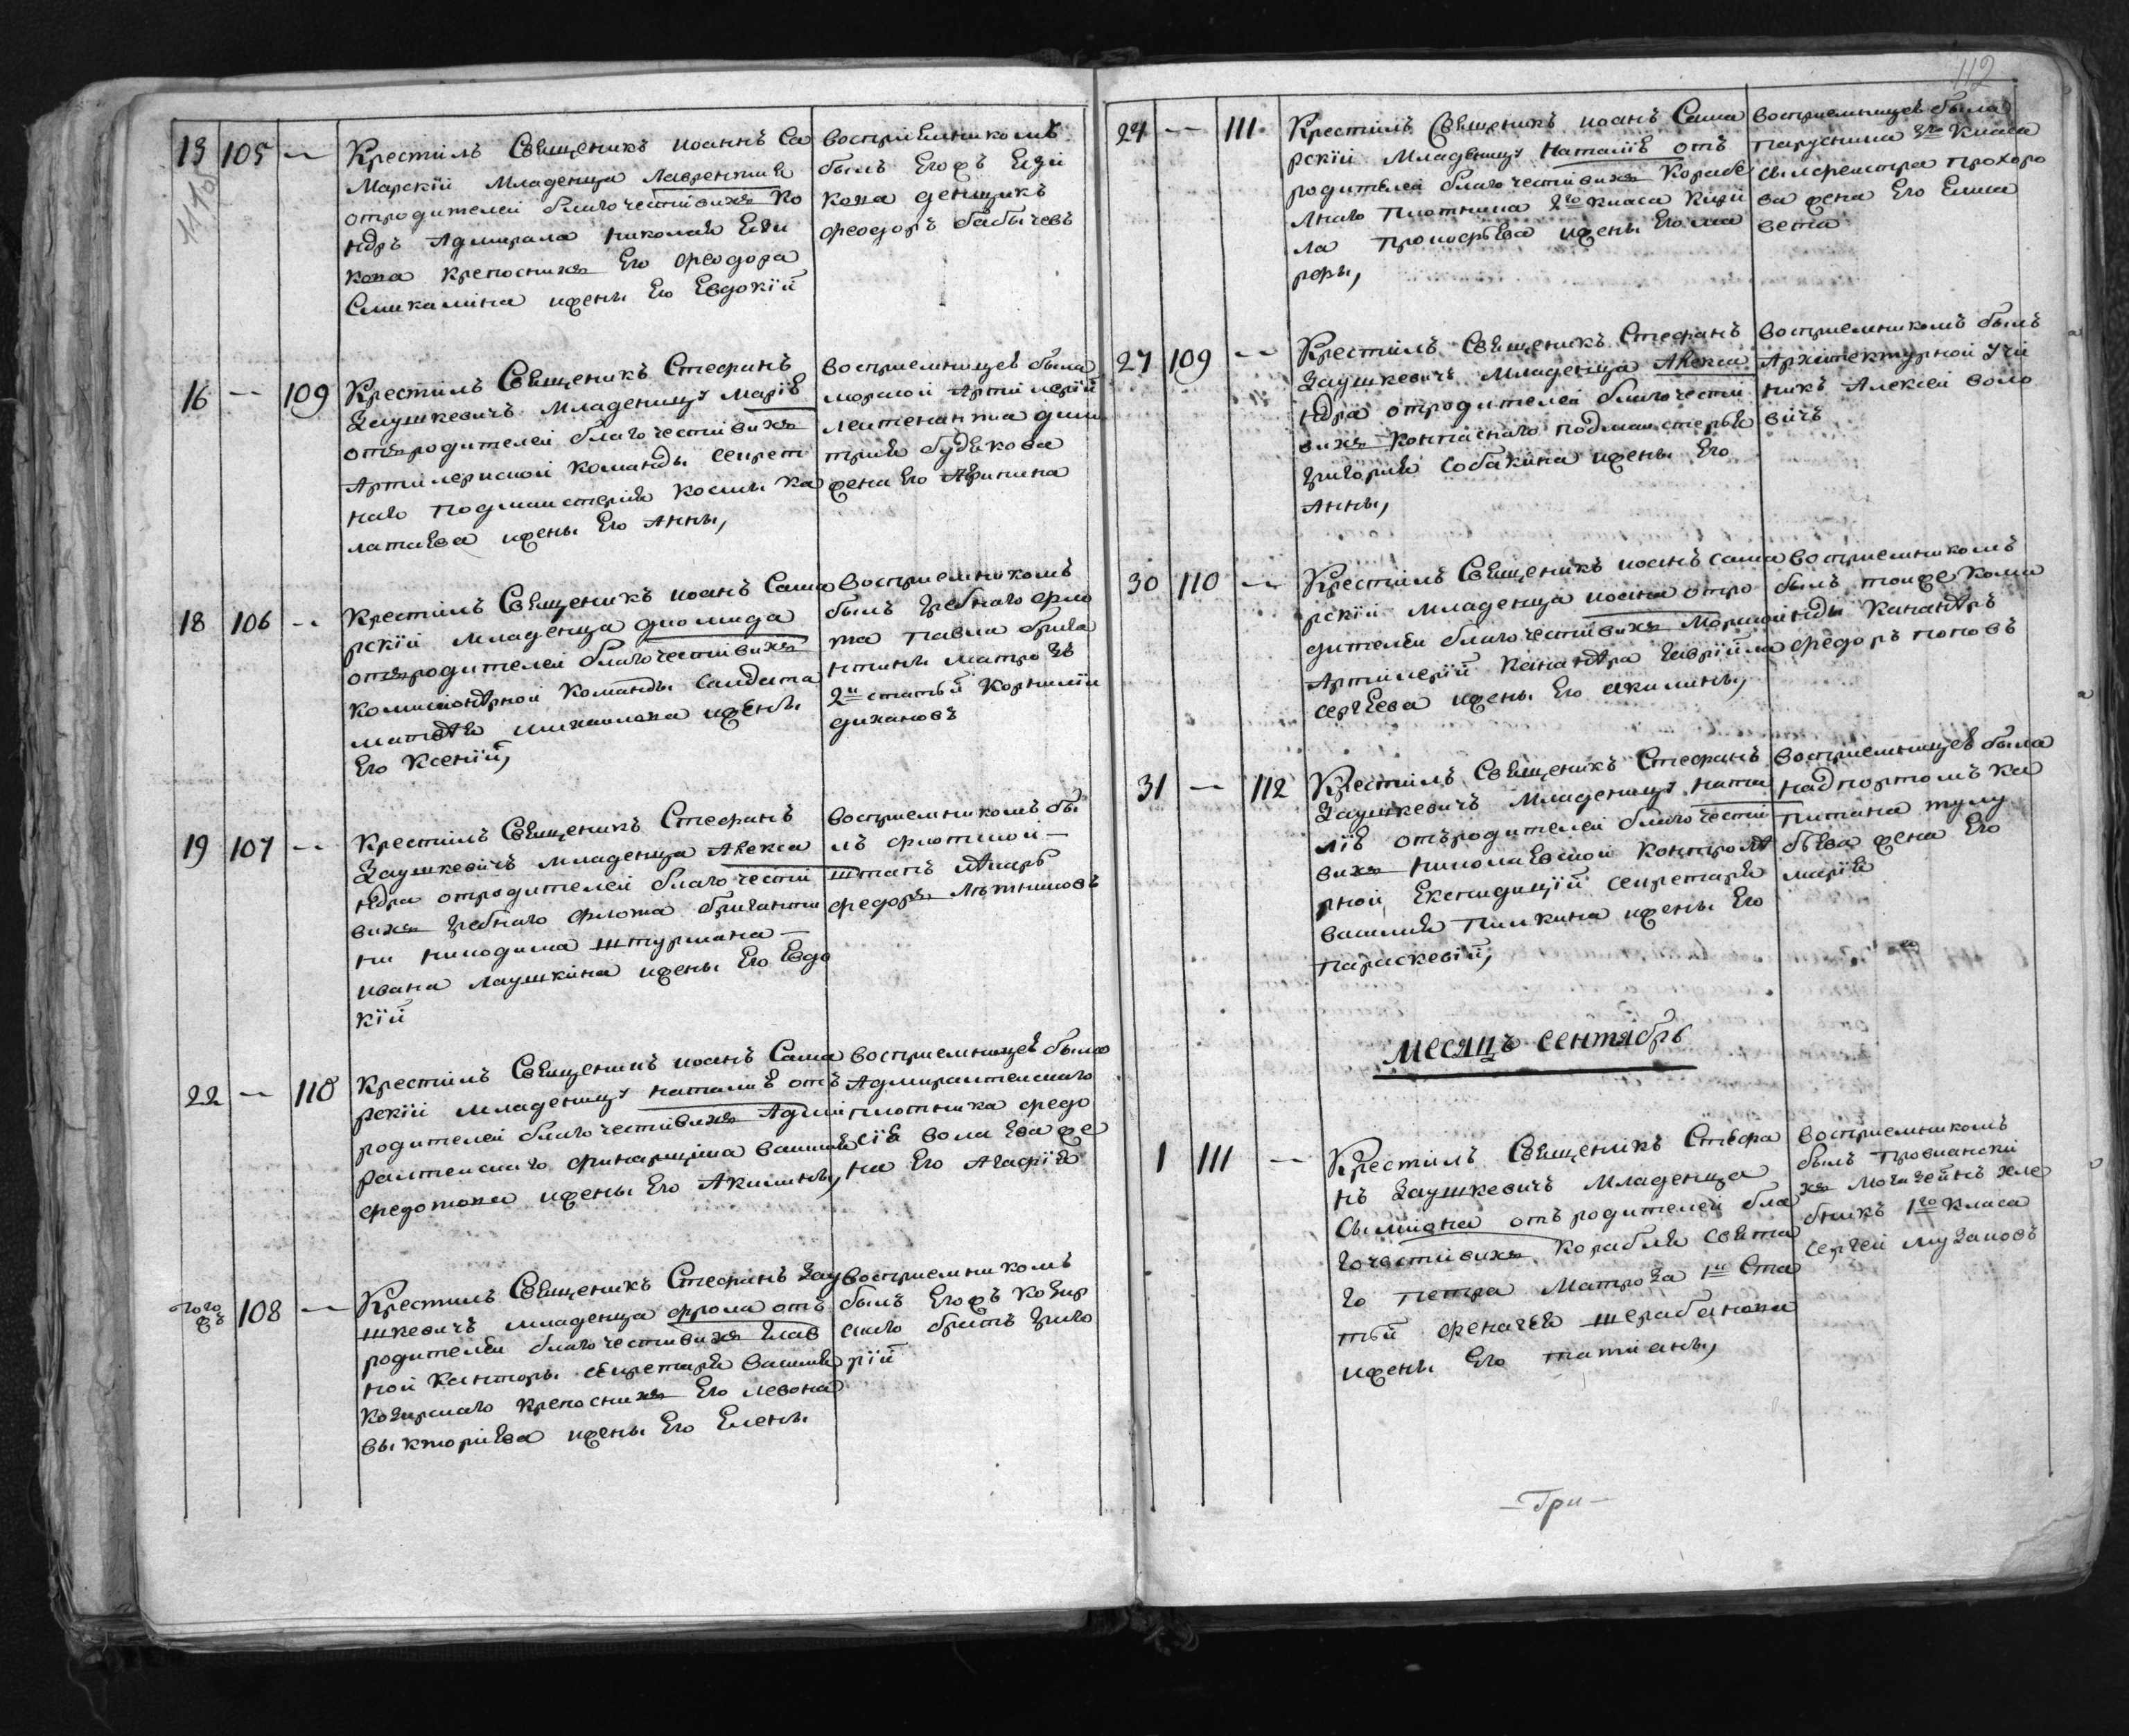 13 105 — Крестилъ Священикъ иоаннъ Са
марскїй Младенца Лаврентия
отродителей благочестивихъ Ко
нтръ Адмирала николая
крепосних Его феодора
ижены Его Евдокїй
восприемникомъ
былъ Егожъ
денщикъ
феодоръ бабычевъ
16 — 109 Крестилъ Священикъ Стефанъ
Заушкевичъ Младеницу Марїю
отъродителей благочестивихъ
Артилериской команды секрет
наго подмаистерия космы Ка
латаева ижены Его Анны,
восприемницею была
морской Артилерїй
леитенанта дми
трия будькова
жена Его Афимина
18 106 — Крестилъ Священикъ иоанъ Сама
рскїй Младенца диомида
отъродителей благочестивихъ
команды салдата
матвея ижены
Его Ксенїй,
восприемникомъ
былъ гребнаго фло
та павла брига
нтины матрозъ
2й статьй Корнилїй
дихановъ
19 107 — Крестилъ Священикъ Стефанъ
Заушкевичъ Младенца Алекса
ндра отродителей благочести
вихъ гребнаго флота бриганти
ни никодима штурмана —
ивана лаушкина ижены Его Евдо
кїй
восприемникомъ бы
лъ флотской —
штапъ лѣкарь
федоръ Лѣтниковъ
22 — 110 Крестилъ Священикъ иоанъ Сама
рскїй Младеницу наталию отъ
родителей благочестивихъ Адми
ралтенскаго василия
федотова ижены Его Акилины,
восприемницею была
Адмиралтенскаго
плотника федо
сїя вола ева же
на Его Агафїя
того
жъ 108 — Крестилъ Священикъ Стефанъ Зау
шкевичъ младенца фрола отъ
родителей благочестивихъ Глав
ной канторы секретаря василия
козирскаго крепосних Его левона
викториева ижены Его Елены
восприемникомъ
былъ Егожъ козир
скаго братъ Григо
рїй
112
24 — 111 Крестилъ Священикъ иоанъ Сама
рскїй Младеницу наталїю отъ
родителей благочестивихъ Корабе
лнаго плотника 2го класа Кири
ла прокофьева ижены Его ма
рфы,
восприемницею была
парусника 3го класа
силфестра прохоро
ва жена Его Елиса
вета
27 109 — Крестилъ Священикъ Стефанъ
Заушкевичъ Младенца Алекса
ндра отродителей благочести
вихъ компаснаго подмаистерья
григория собакина ижены Его
Анны,
восприемникомъ былъ
Архитектурной учи
никъ Алексей воло
вичъ
30 110 — Крестилъ Священикъ иоанъ сама
рскїй младенца иоана отро
дителей благочестивихъ Морской
Артилерїй канантра гаврїила
сергѣева ижены Его акилины,
восприемникомъ
былъ тоиже кома
нды канантръ
федоръ поповъ
31 — 112 Крестилъ Священикъ Стефанъ
Заушкевичъ Младеницу ната
лїю отъродителей благочести
вихъ николаевской контроле
рной Експидицїй секретаря
василия пилкина ижены Его
параскевїй,
восприемницею была
надпортомъ ка
питана тулу
бьева жена Его
марїя
Месяцъ сентябрь
1 111 — Крестилъ Священикъ Стефа
нъ Заушкевичъ Младенца
симиона отъродителей бла
гочестивихъ корабля свята
го петра матроза 1й Ста
тьй шерабанова
ижены Его татианы,
восприемникомъ
былъ провиански
хъ магазейнъ хле
бникъ 1го класа
сергеи музановъ
— Гри —